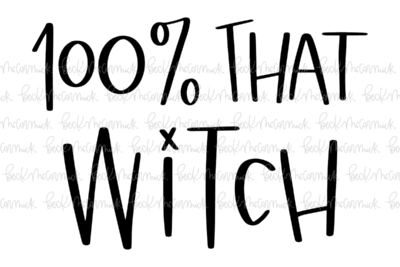 100% THAT
WiTCH